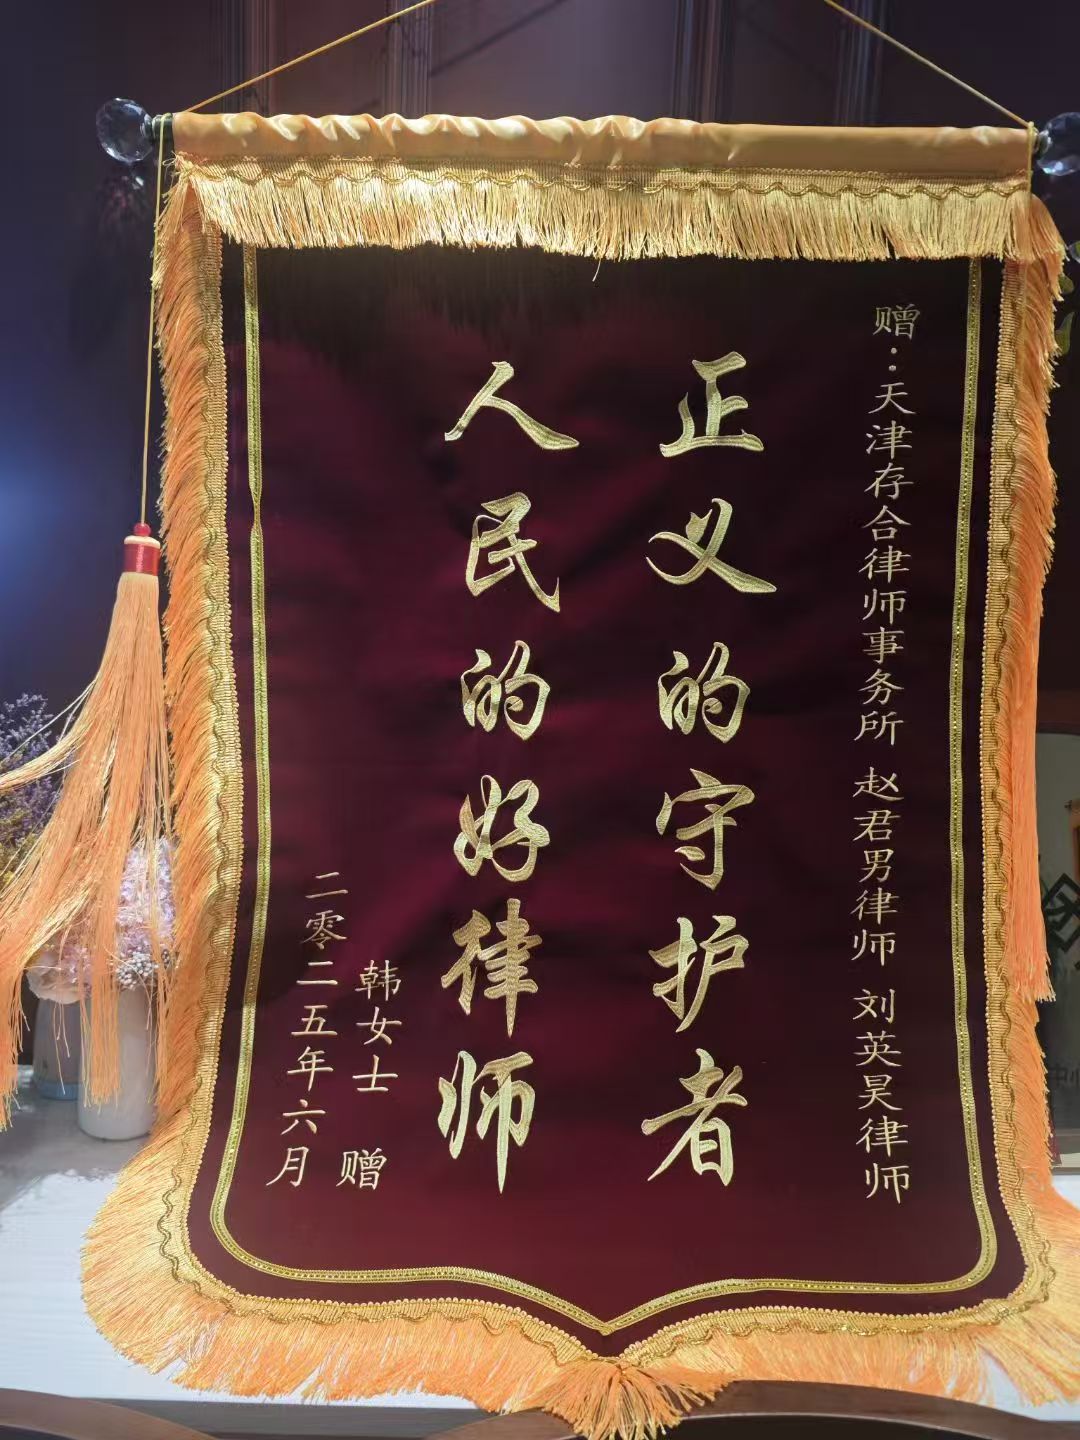 赠：天津存合律师事务所 赵君男律师 刘英昊律师
正义的守护者
人民的好律师
韩女士 赠
二零二五年六月